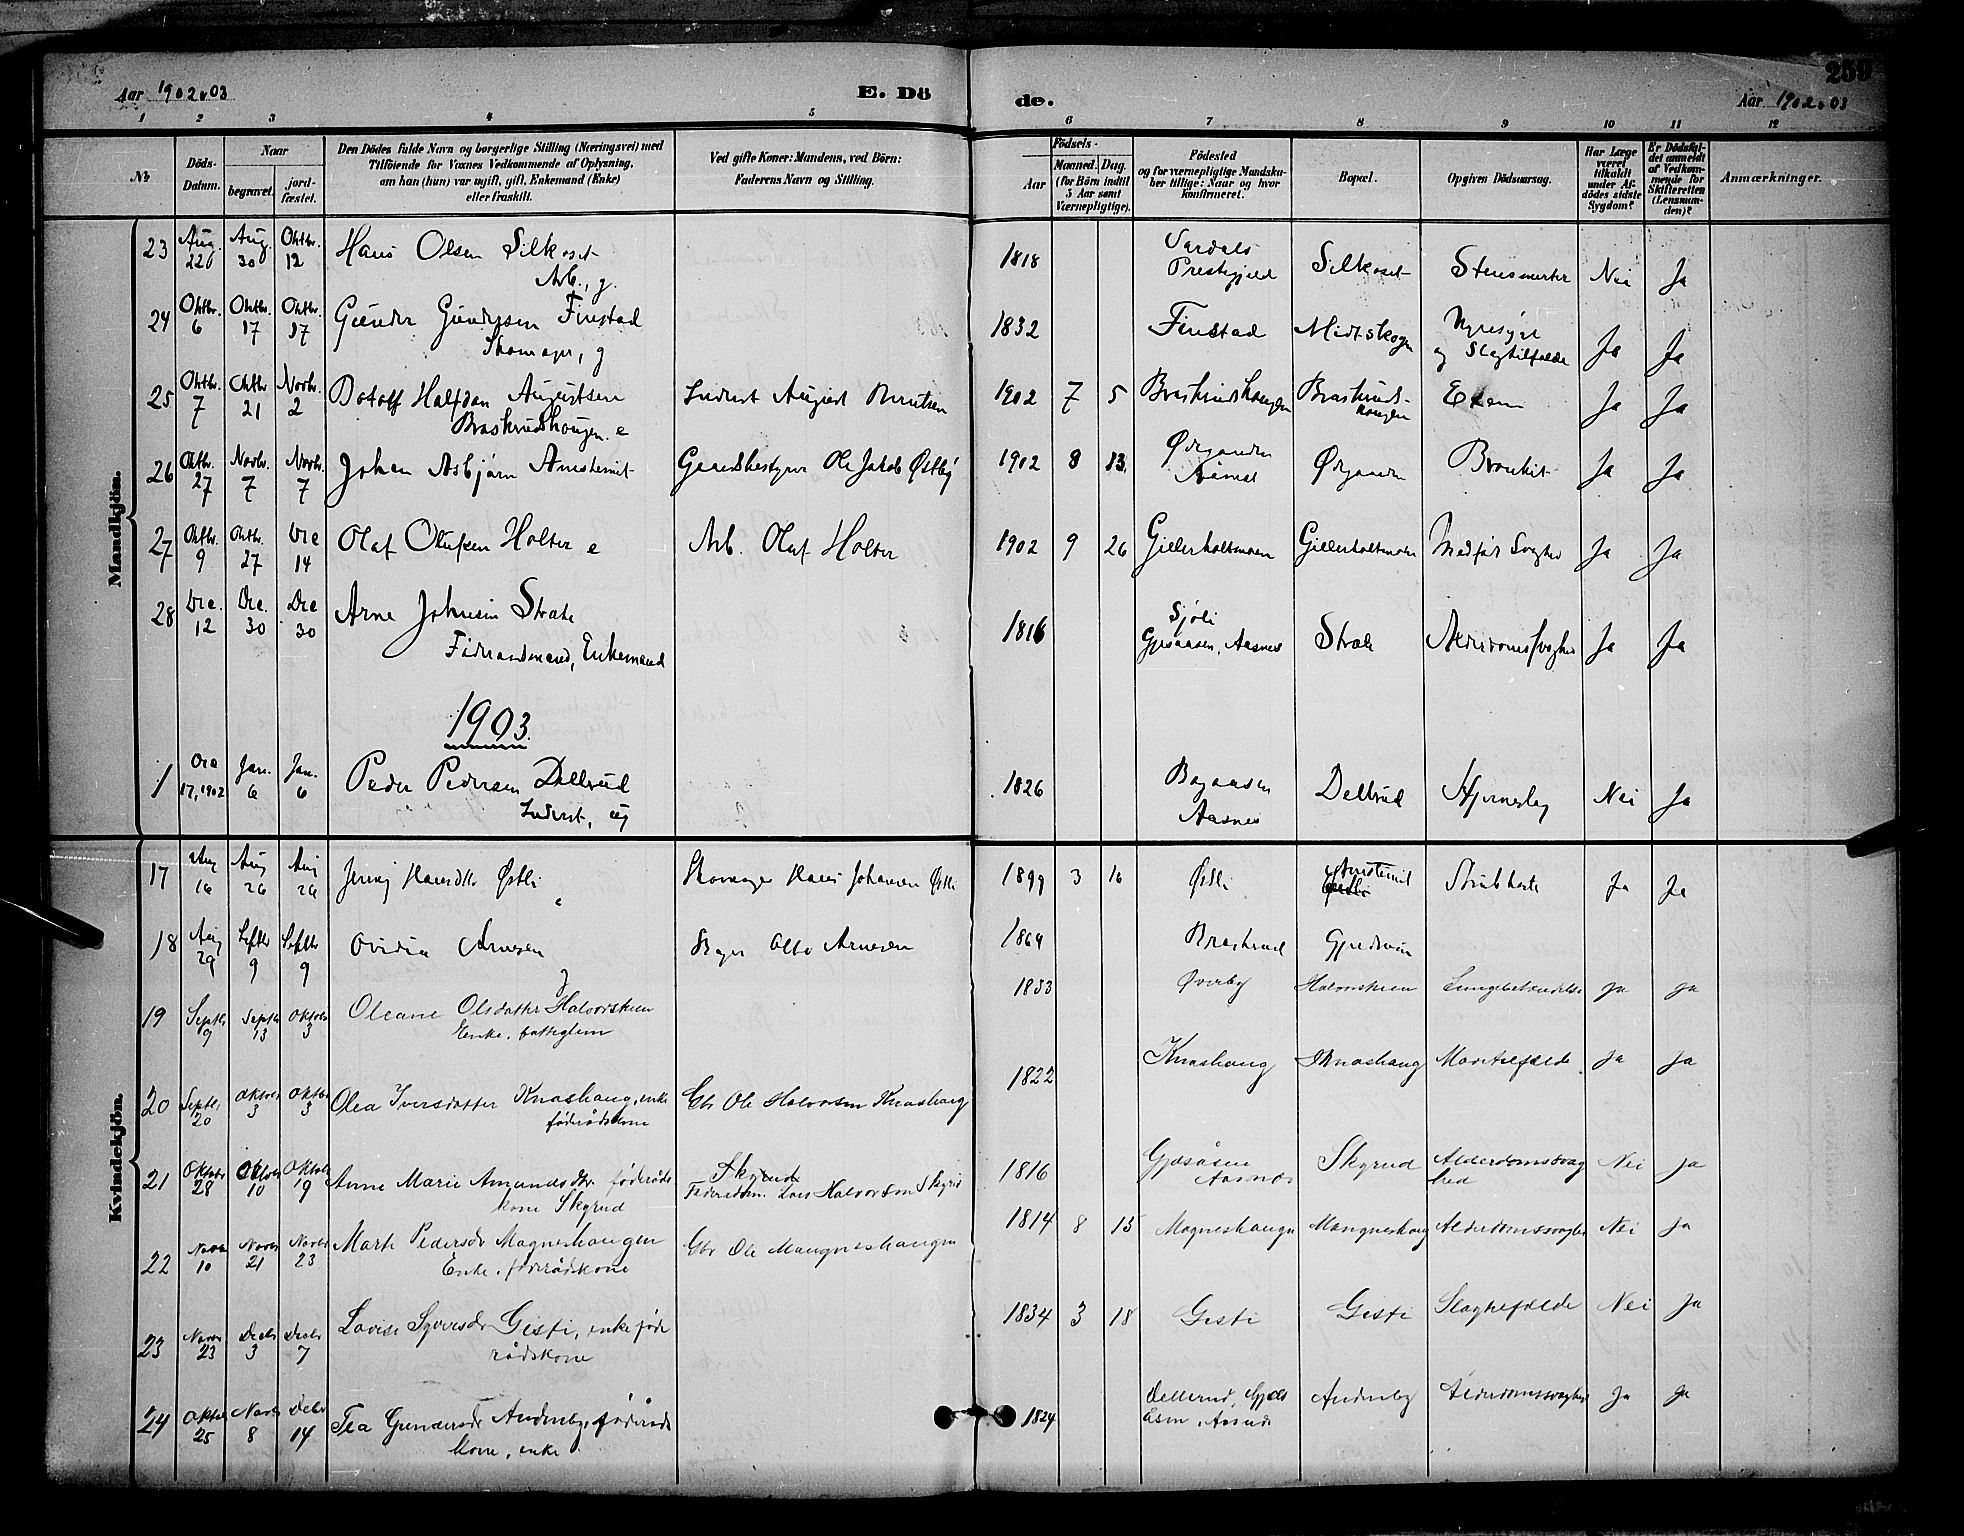 Aar 1902 & 03
E. Döde.
259
Aar 1902 & 03
1 2 3 4 5 6 7 8 9 10 11 12
No.
Döds-Datum.
Naar
begravet.
jord-fæstet.
Den Dödes fulde Navn og borgerlige Stilling (Næringsvei) med
Tilföiende for Voxnes Vedkommende af Oplysning,
om han (hun) var ugift, gift, Enkemand (Enke)
eller fraskilt.
Ved gifte Koner: Mandens, ved Börn:
Faderens Navn og Stilling.
Födsels-
Aar
Maaned. Dag.
(for Börn indtil
5 Aar samt
Værnepligtige).
Födested
og for værnepligtige Mandska-
ber tillige: Naar og hvor
konfirmeret.
Bopæl.
Opgiven Dödsaarsag.
Har Læge
været
tilkaldt
under Af-
dödes sidste
Sygdom?
Er Dödsfal-
det anmeldt
af Vedkom-
mende for
Skifteretten
(Lensman-
den)?
Anmærkninger.
Mandkjön.
23 Aug. Aug. Oktbr. 30 12 Hans Olsen Silkoset
Arb., g.
1818 Prestegjeld Silkoset Nei Ja
24 Oktbr. 6 Oktbr. 17 Oktbr. 17 Gunder Gundersen Finstad
Skomager, g
1832 Finstad Midtskogen Nyresyge
og Slagtilfælde Ja Ja
25 Oktbr. 7 Oktbr. 21 Novbr. 2 Halfdan Augustsen
Braskerudhaugen e
Inderst August
1902 7 5 Braskerudhaugen Braskerud-
haugen Ja Ja
26 Oktbr. 27 Novbr. 7 Novbr. 7 Johan Asbjørn Arnstemit
Gaardbestyrer Ole Jakob Østby
1902 8 13 Bronkit Ja Ja
27 Oktbr. 9 Oktbr. 27 Dec 14 Olaf Olufsen Holter e
Arb. Oluf Holter
1902 9 26 Gillerholtmoen Gillerholtmoen Medfød Svaghed Ja Ja
28 Dec. 12 Dec. 30 Dec 30 Arne Johnsen Stræte
Føderaadsmand, Enkemand
1816 Sjøli
Gjesaasen, Aasnes Alderdomssvaghed Ja Ja
1903
1 Dec 17, 1902 Jan. 6 Jan. 6 Peder Pedersen Dellerud
Inderst, ug
1826 Aasnes Dellerud Hjerneslag Nei Ja
Kvindekjön.
17 Aug 16 Aug 26 Aug 26 Jenny Hansdtr Østli
e
Skomager Hans Johansen Østli
1899 3 16 Østli Arnstemit Strubehoste Ja Ja
18 Aug 29 Septbr 9 Septbr 9 Ovidia Arnesen
g
Otto Arnesen
1864 Braskerud
19 Septbr 9 Septbr 13 Oktober 3 Oleane Olsdatter Halvorsheim
Enke. fattiglem
1833 Øverby Lungebetændelse Ja Ja
20 Septbr 20 Oktober 3 Oktbr 3 Olea Iversdatter Knashaug, enke
føderådskone
Gbr Ole Halvorsen Knashaug
1822 Knashaug Knashaug Ja Ja
21 Oktober 28 Oktober 10 Oktober 19 Anne Marie Amundsdtr. føderåds
kone Skyrud
Lars Halvorsen Skyrud
1816 Gjesåsen
Aasnes Skyrud Alderdomssvag
hed Nei Ja
22 Novbr 10 Novbr 21 Novbr 23 Marte Pedersdr Magneshaugen
Enke. føderådskone
Gbr Ole Mangneshaugen
1814 8 15 Magneshaugen Mangneshaug Alderdomssvaghed Nei Ja
23 Novbr 23 Decbr 3 Decbr 7 Lovise Syversdr Gesti, enke føde
rådskone
1834 3 18 Gesti Gesti Slagtilfælde Nei Ja
24 Oktbr 25 Novbr 8 Decbr 14 Tea Gundersdr Anderby, føderåds
kone, enke
1824 Dellerud, Gjes
åsen, Aasnes Anderby Alderdomssvaghed Ja Ja